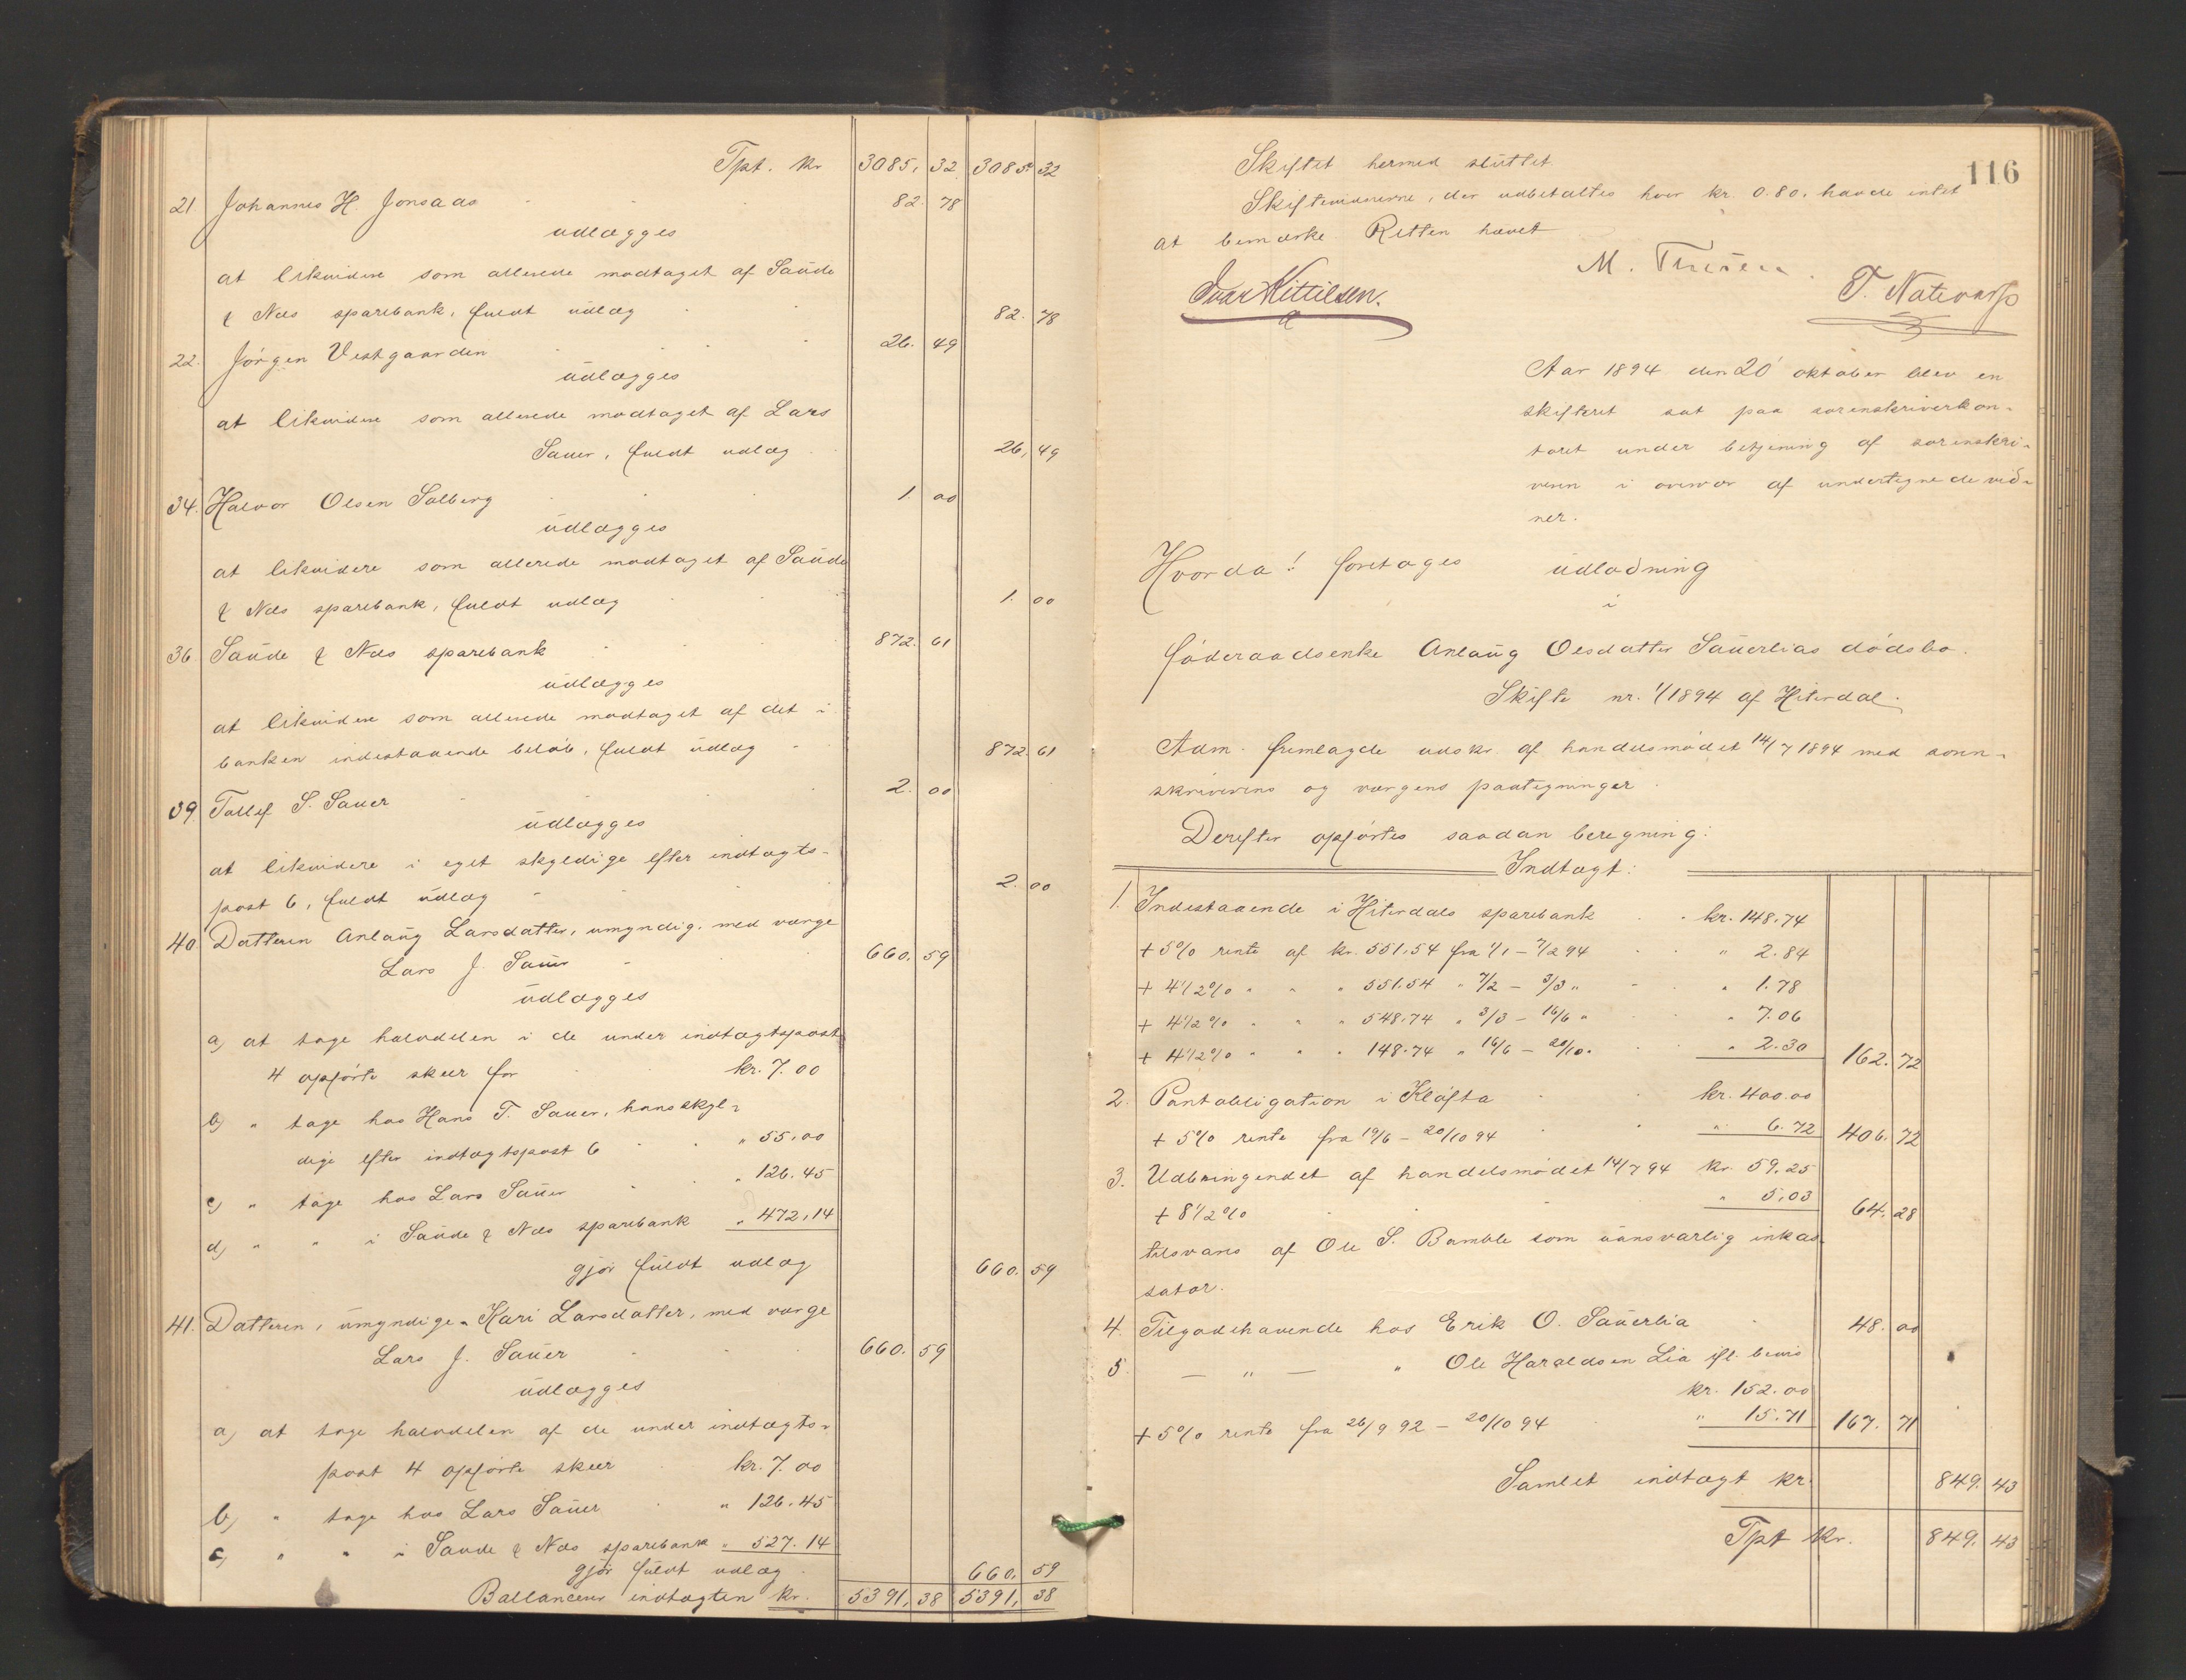 Tpt. kr 3085,32 3085,32
21 Johannes H. Jonsaas 82.78
udlægges
at likvidere som allerede modtaget af Saude
& Nes sparebank, fuldt udlæg 82.78
22. Jörgen Vestgaarden 26.49
udlægges
at likvidere som allerede modtaget af Lars
Sauer, fuldt udlæg 26,49
34. Halvor Olsen Solberg 1.00
udlægges
at likvidere som allerede modtaget af Saude
& Nes sparebank, fuldt udlæg 1.00
36 Saude & Nes sparebank 872.61
udlægges
at likvidere som allerede modtaget af det i
banken indestaaende beløb, fuldt udlæg 872.61
39. Tollef S. Sauer 2.00
udlægges
at likvidere i eget skyldige efter indtægts-
post 6, fuldt udlæg 2.00
40 Datteren Anlaug Larsdatter, umyndig, med værge
Lars J. Sauer 660.59
udlægges
a) at tage halvdelen i de under indtægtspost
4 opførte skeer for kr. 7.00
b) " tage hos Hans T. Sauer, hans skyl-
dige efter indtægtspost 6 " 55,00
c) " tage hos Lars Sauer " 126.45
d) " " i Saude & Nes sparebank " 472,14
gjør fuldt udlæg 660.59
41. Datteren, umyndige Kari Larsdatter, med værge
Lars J. Sauer 660.59
udlægges
a) at tage halvdelen af de under indtægts-
post 4 opførte skeer kr. 7.00
b) " tage hos Lars Sauer " 126.45
c) " " i Saude & Nes sparebank " 527.14
gjør fuldt udlæg 660.59
Ballancerer indtægten kr. 5391,38 5391,38
116
Skiftet hermed sluttet.
Skiftevidnerne, der udbetaltes hver kr. 0.80. havde intet
at bemærke. Retten hævet
M.
Ivar Kittilsen. T.
Aar 1894 den 20 oktober blev en
skifteret sat paa sorenskriverkon-
toret under betjening af sorenskri-
veren i overvær af undertegnede vid-
ner.
Hvorda! foretoges udlodning
i
føderaadsenke Anlaug Olsdatter Sauerlias dødsbo.
Skifte nr. 1/1894 af Hiterdal.
Adm. fremlagde udskr. af handelsmødet 14/7 1894 med soren-
skriverens og værgens paategninger.
Derefter opførtes saadan beregning:
Indtægt:
1. Indestaaende i Hiterdals sparebank kr. 148.74
+ 5% rente af kr. 551.54 fra 1/1 – 7/2 94 " 2.84
+ 4 1/2 % " " " 551.54 " 7/2 – 3/3 " " 1.78
+ 4 1/2 % " " " 548.74 " 3/3 – 16/6 " " 7.06
+ 4 1/2 % " " " 148.74 " 16/6 – 20/10. " 2.30 162.72
2. Pantobligation i Kløfta kr. 400.00
+ 5% rente fra 19/6 – 20/10 94 " 6.72 406.72
3. Udbringendet af handelsmødet 14/7 94 kr. 59.25
+ 8 1/2 % " 5,03 64.28
tilsvares af Ole S. Bamble som uansvarlig inkas-
sator.
4. Tilgodehavende hos Erik O. Sauerlia 48.00
5. — " — " Ole Haraldsen Lia efl. bevis
kr. 152.00
+ 5% rente fra 26/9 92 – 20/10 94 " 15.71 167.71
Samlet indtægt kr. 849.43
Tpt kr. 849.43